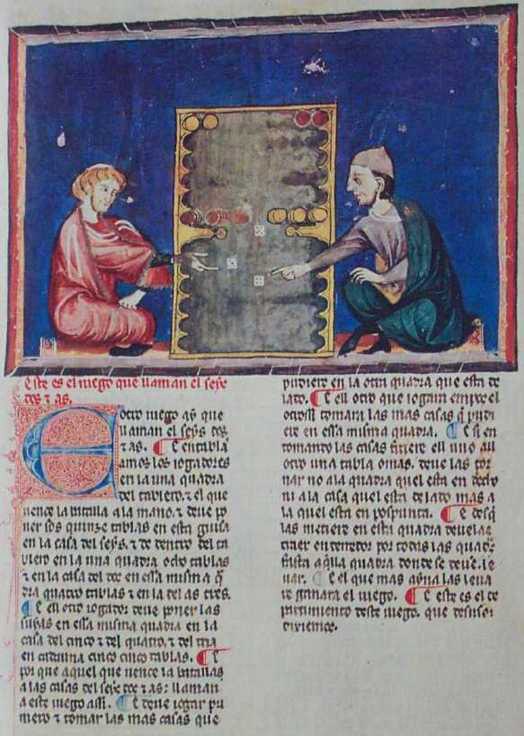 Este es el iuego que llaman el seys
dos & as.
Otro iuego ay que
llaman el seys dos
& as. ¶ E entabla
amos los iogadores
en la una quadra
del tablero. & el que
uence la batalla a la mano. & deue po
ner sos quinze tablas en esta guisa
en la casa del seys. & de dentro del ta
blero en la una quadra ocho tablas
& en la casa del dos en essa misma q
dra quatro tablas & en la del as tres.
¶ E ell otro iogador deue poner las
suyas en essa misma quadra en la
casa del cinco & del quatro. & del tria
en cadauna cinco cinco tablas. ¶ E
por que aquel que uence la batalla
a las casas del seys dos & as: llaman
a este iuego assi. ¶ E deue iogar pri
mero & tomar las mas casas que
pudiere en la otra quadra que esta de
lato. ¶ E ell otro que iogara empos el
otrossi tomara las mas casas q pudi
ere en essa misma quadra. ¶ E si en
tomando las casas firiere ell uno all
otro una tabla o mas. deue las tor
nar no a la quadra que esta en
ni a la casa quel esta de lado mas a
la quel esta en pospunta. ¶ E desq
las metiere en esta quadra deuelas
traer en derredor por todas las quadr
fasta aqlla quadra donde se deue le
uar. ¶ E el que mas ayna las leua
re ganara el iuego. ¶ E este es el de
partimiento deste iuego. que desuso
dixiemos.